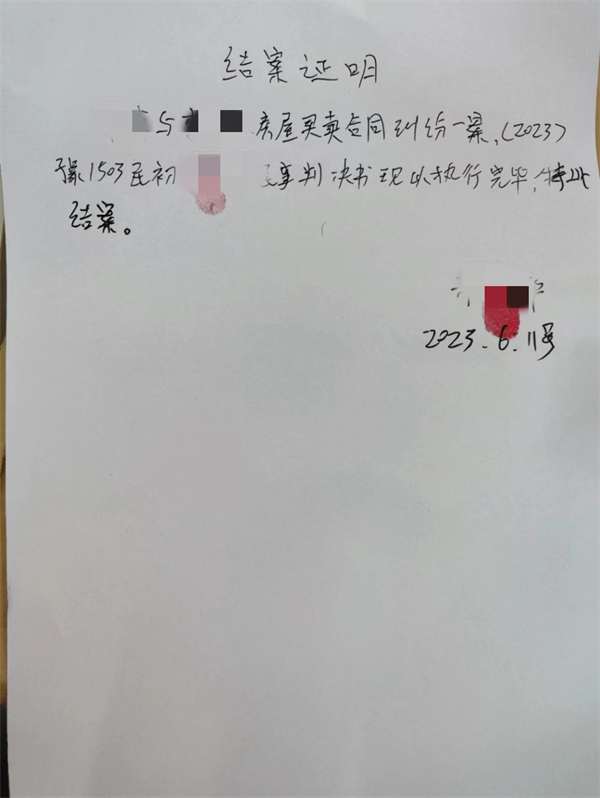 结案证明
与 房屋买卖合同纠纷一案,(2023)
豫1503民初 事判决书现以执行完毕,特此
结案。
2023.6.11号